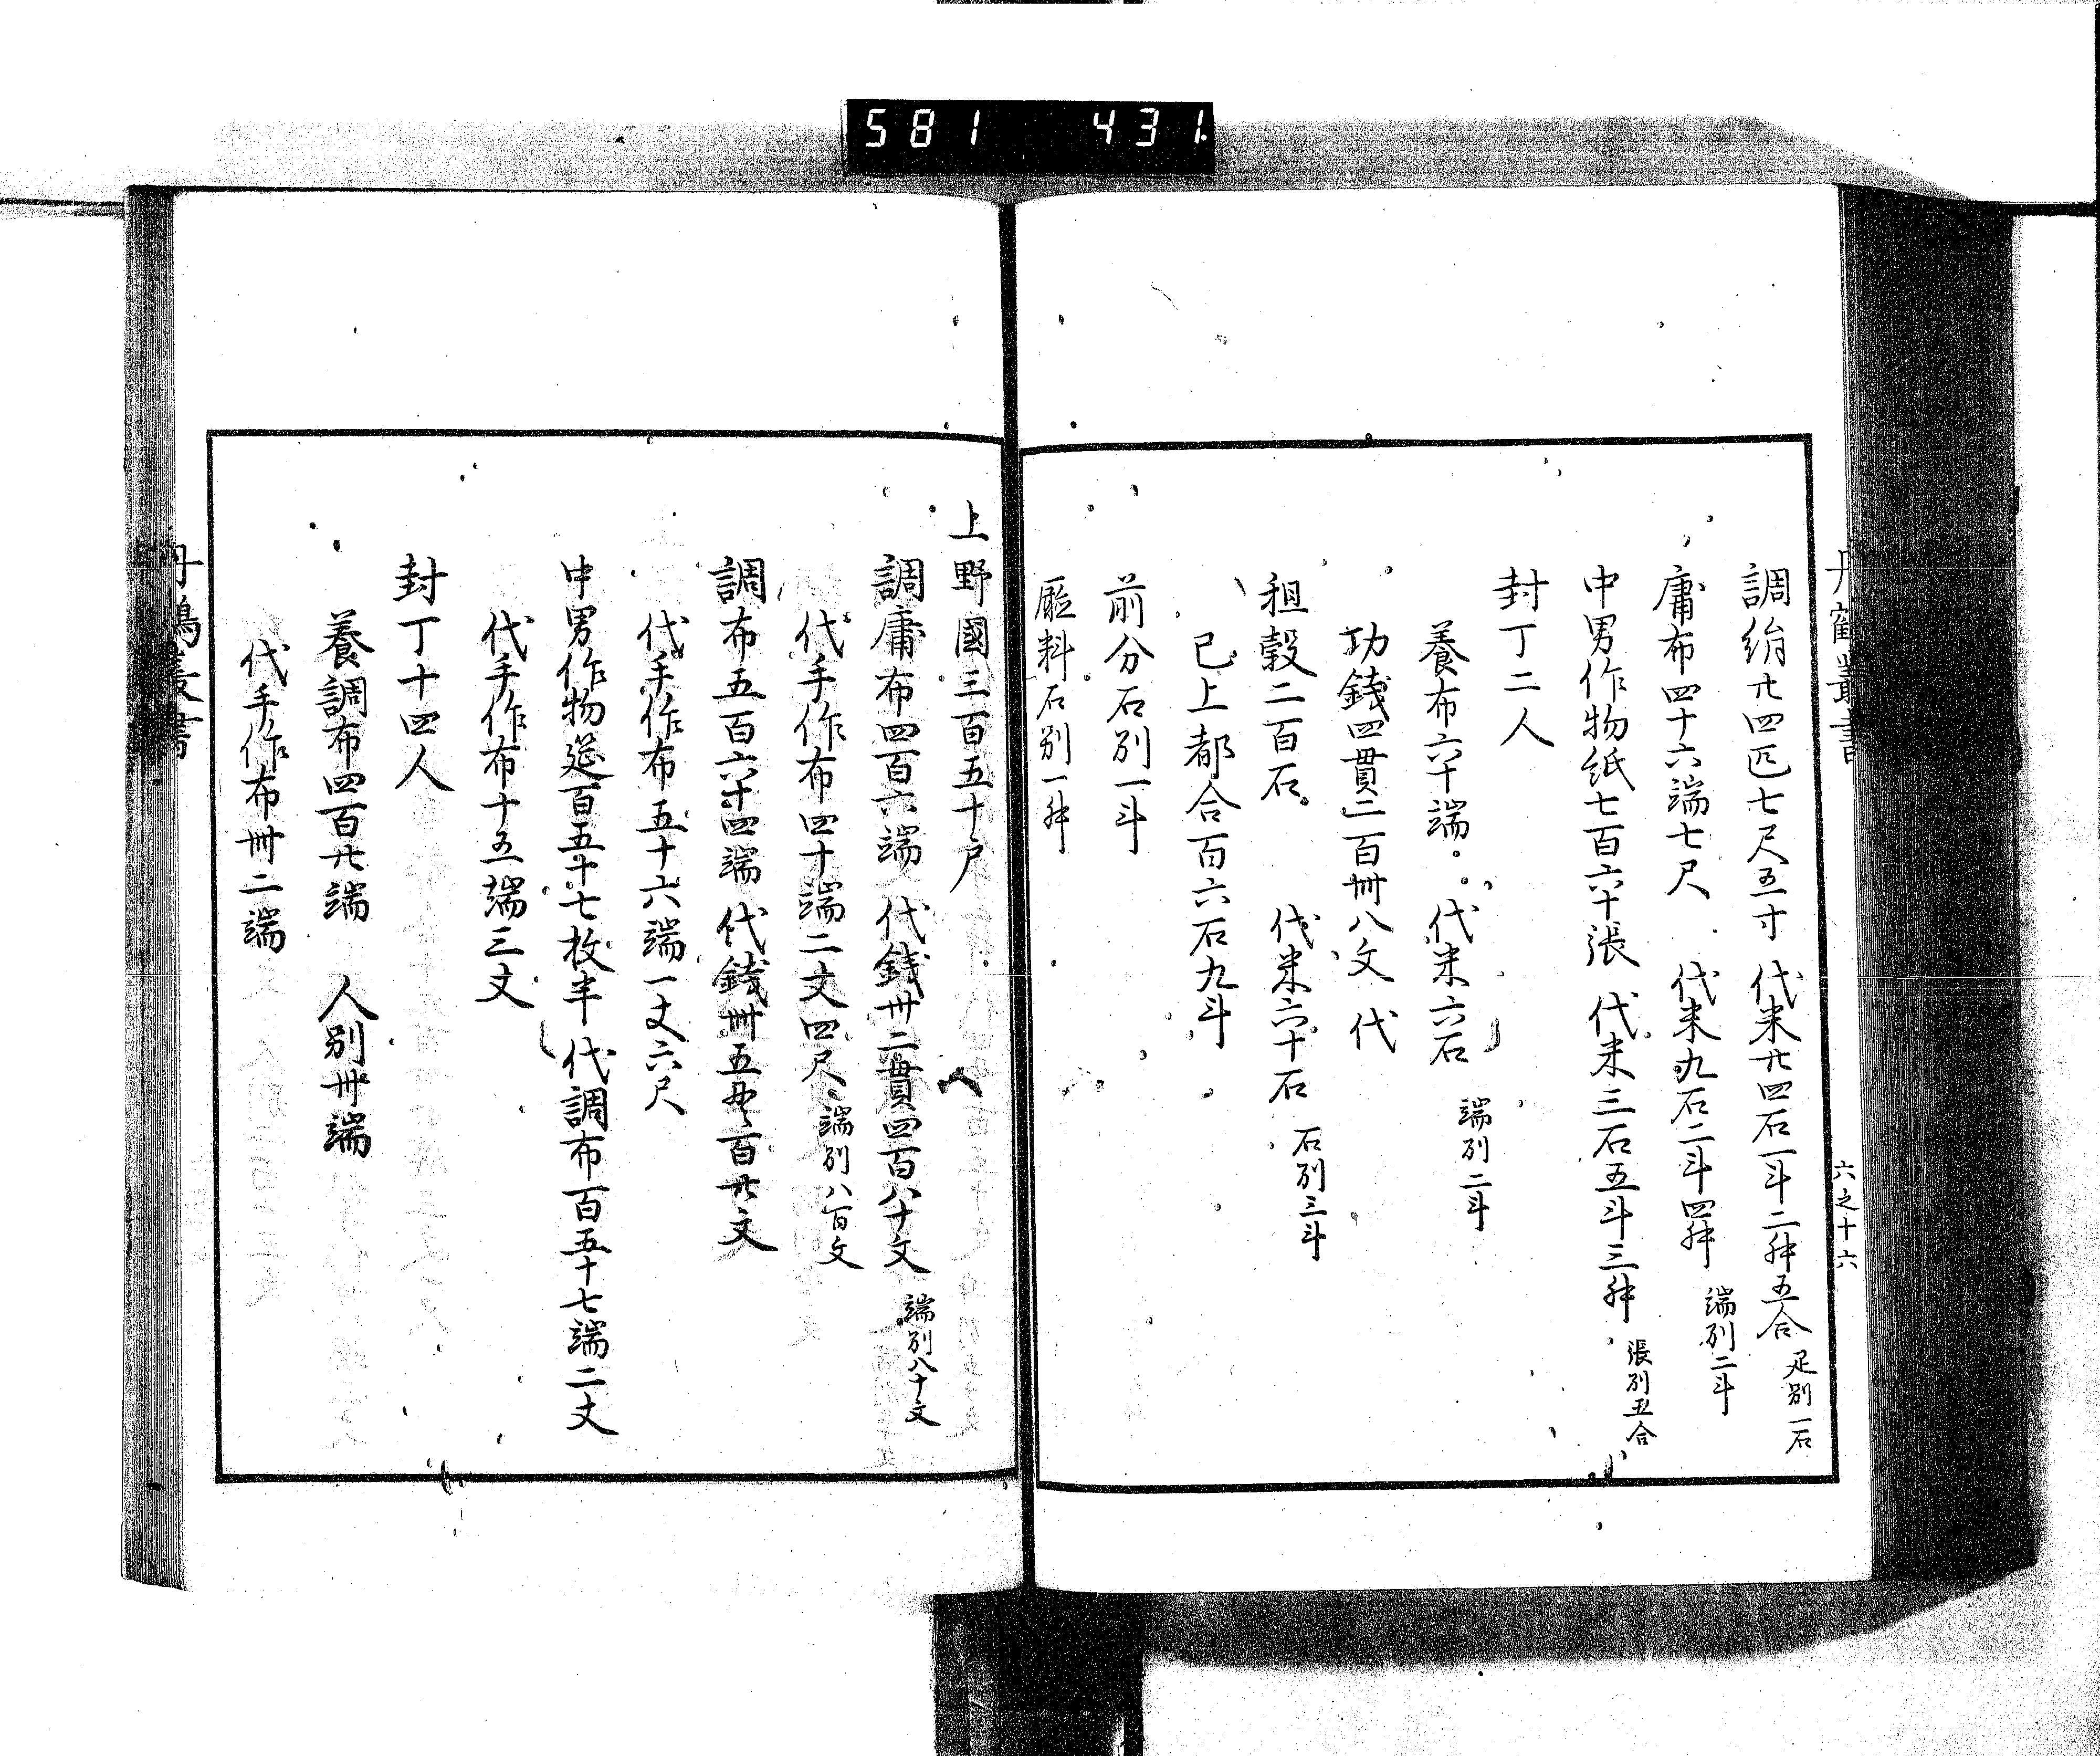 581 431
丹鶴叢書
六之十六
調絹廿四匹七尺五寸 代米廿四石一斗二舛五合 疋別一石
庸布四十六端七尺 代米九石二斗四舛 端別二斗
中男作物紙七百六十張 代米三石五斗三舛 張別五合
封丁二人
養布六十端 代米六石 端別二斗
功錢四貫二百卌八文 代
租穀二百石 代米六十石 石別三斗
已上都合百六石九斗
前分石別一斗
厨料石別一舛
上野國三百五十戸
調庸布四百六端 代錢卅二貫四百八十文 端別八十文
代手作布四十端二丈四尺 端別八百文
調布五百六十四端 代錢卌五貫百廿文
代手作布五十六端一丈六尺
中男作物莚百五十七枚半 代調布百五十七端二丈
代手作布十五端三丈
封丁十四人
養調布四百廿端 人別卅端
代手作布卌二端
丹鶴叢書